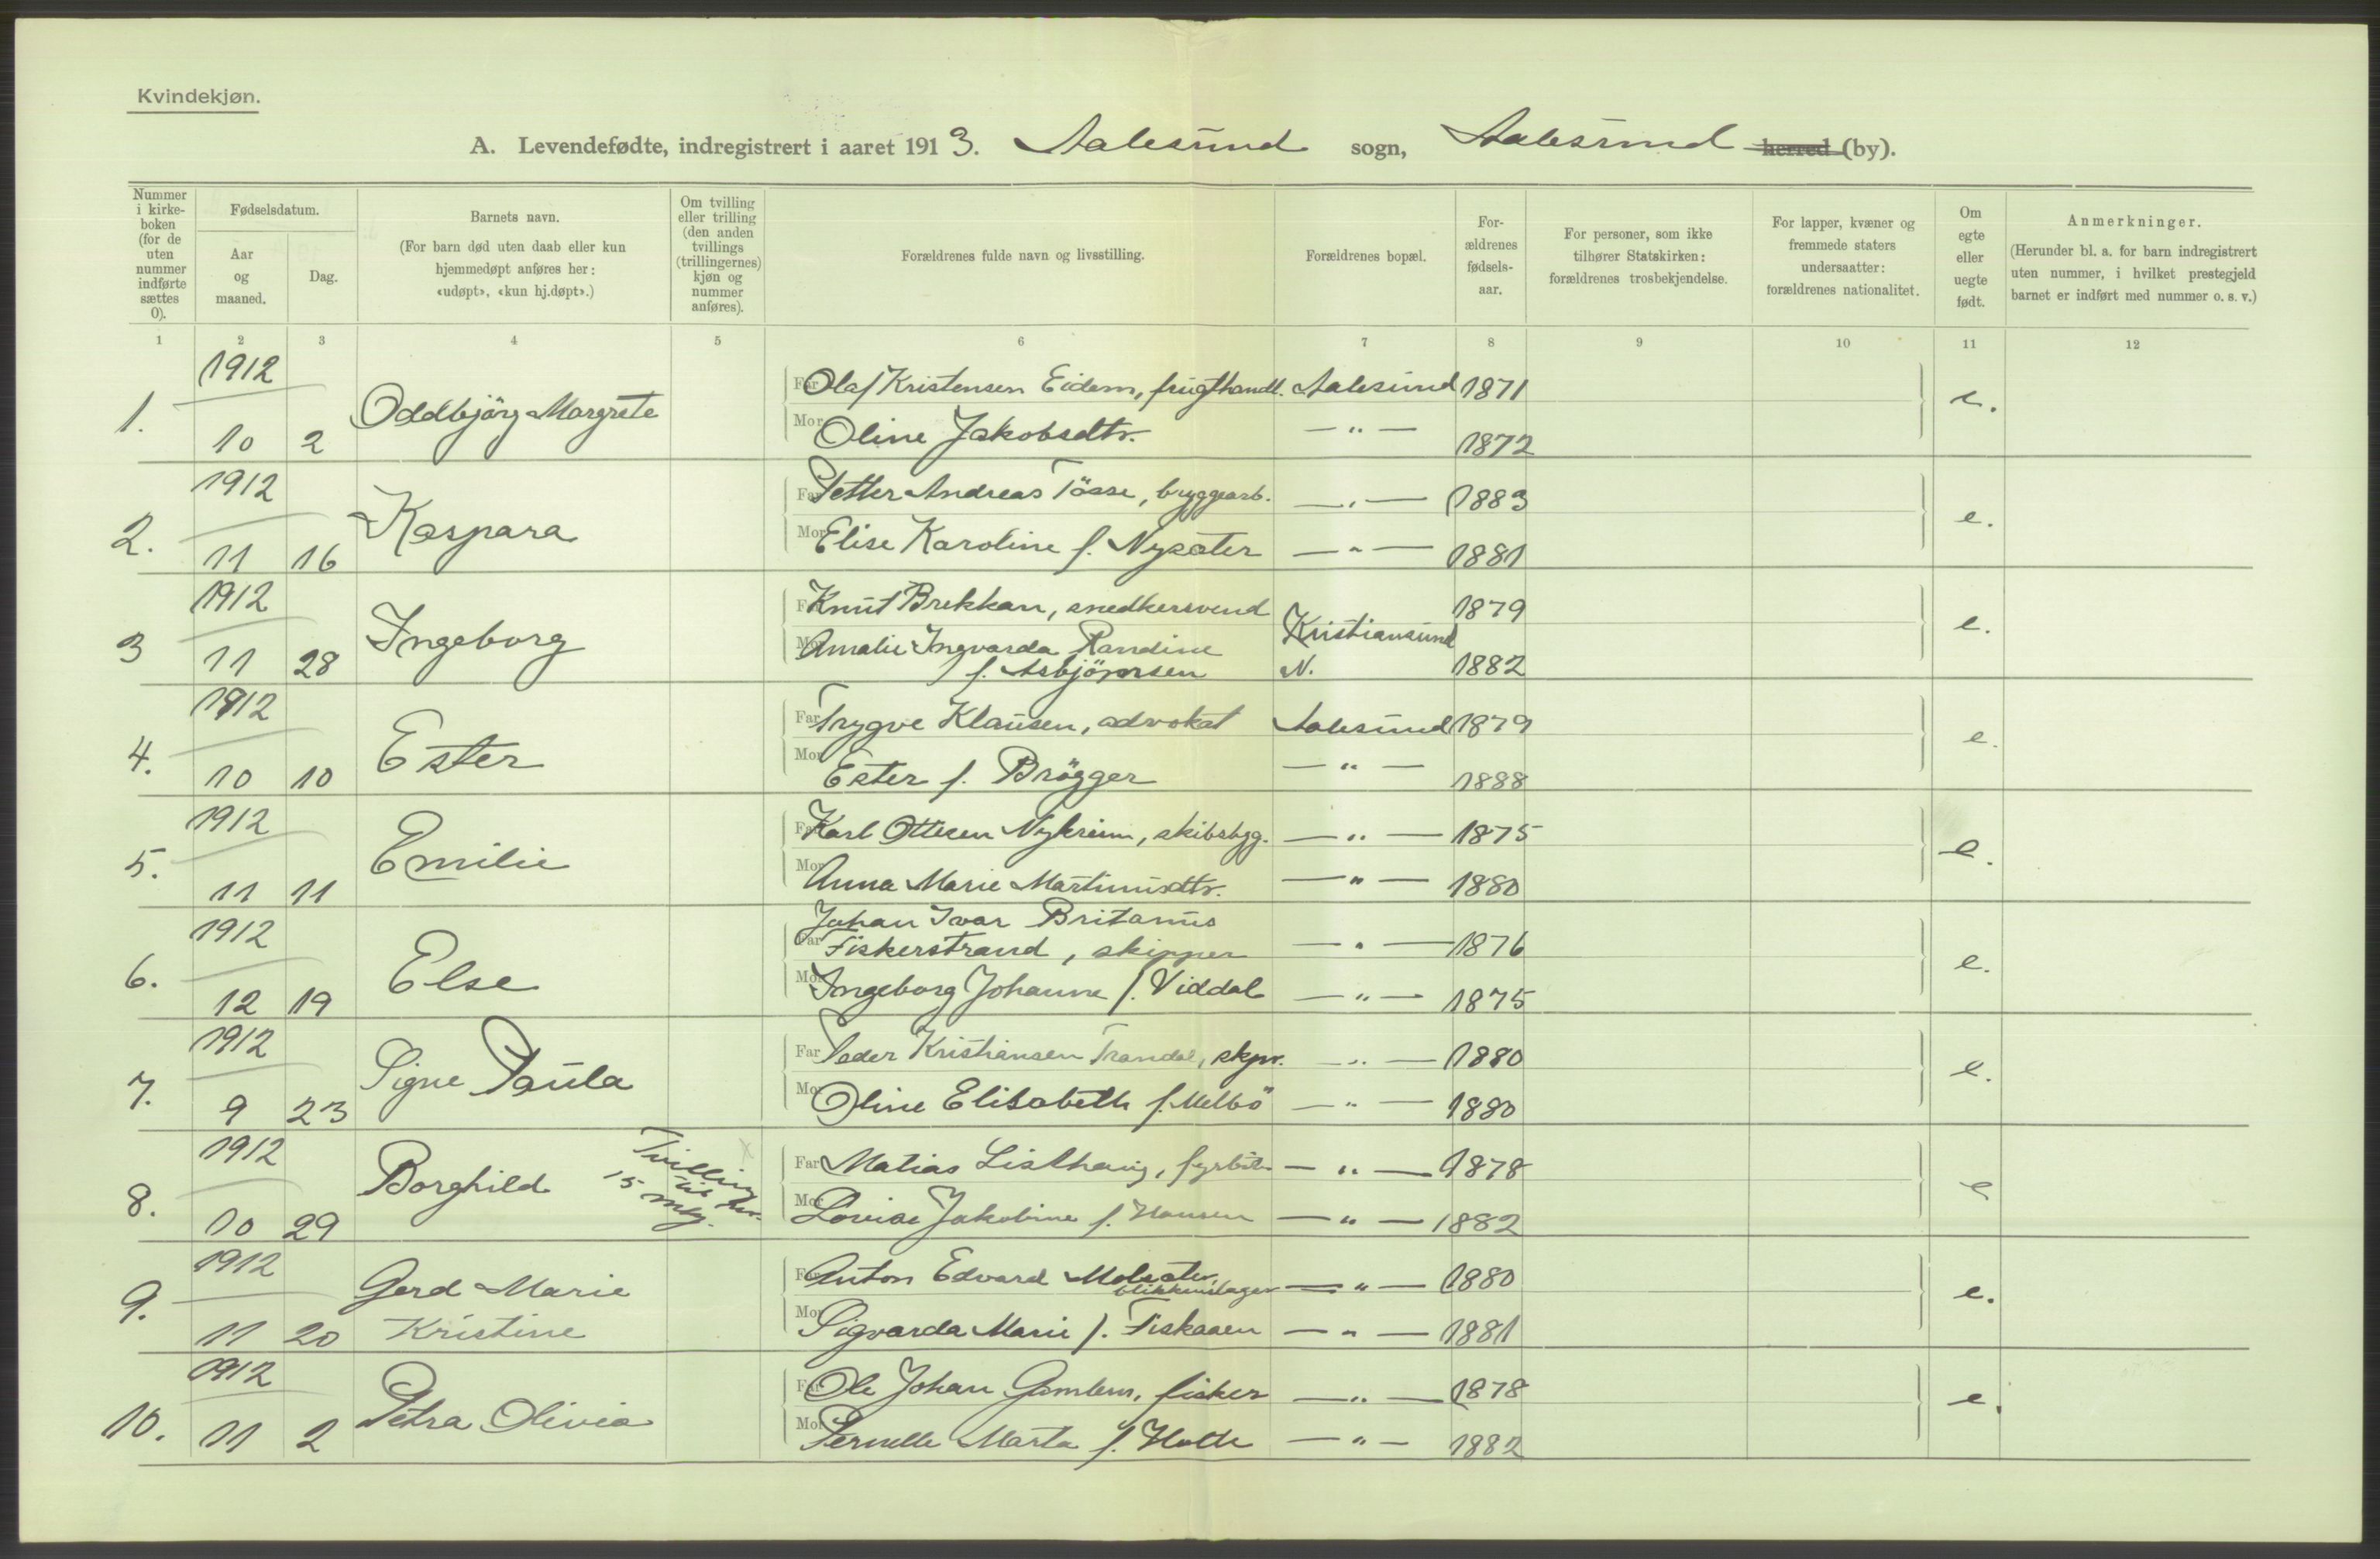 Kvindekjøn.
A. Levendefødte, indregistrert i aaret 1913. Aalesund sogn, Aalesund herred (by).
Nummer i kirkeboken (for de uten nummer indførte sættes 0).
Fødselsdatum.
Aar og maaned.
Dag.
Barnets navn.
(For barn død uten daab eller kun hjemmedøpt anføres her: «udøpt», «kun hj.døpt».)
Om tvilling eller trilling (den anden tvillings (trillingernes) kjøn og nummer anføres).
Forældrenes fulde navn og livsstilling.
Forældrenes bopæl.
Forældrenes fødselsaar.
For personer, som ikke tilhører Statskirken: forældrenes trosbekjendelse.
For lapper, kvæner og fremmede staters undersaatter: forældrenes nationalitet.
Om egte eller uegte født.
Anmerkninger.
(Herunder bl. a. for barn indregistrert uten nummer, i hvilket prestegjeld barnet er indført med nummer o. s. v.)
1 2 3 4 5 6 7 8 9 10 11 12
1912
Far Olaf Kristensen Eidem, frugthandl. Aalesund 1871
1. 10 2 Oddbjörg Margrete e.
Mor Oline Jakobsdtr. — " — 1872
1912
Far Petter Andreas Tösse, bryggearb. — " — 1883
2. 11 16 Kaspara e.
Mor Elise Karoline f. Nysæter — " — 1881
1912
Far Knut Brekkan, snedkersvend 1879
3 11 28 Ingeborg Kristiansund N. e.
Mor Amalie Ingvarda Randine
f. Asbjörnsen 1882
1912
Far Trygve Klausen, advokat Aalesund 1879
4. 10 10 Ester e.
Mor Ester f. Brögger — " — 1888
1912
Far Karl Ottesen Nykreim, skibsbygg. — " — 1875
5. 11 11 Emilie e.
Mor Anna Marie Martinusdtr. — " — 1880
1912
Johan Ivar Britanus
Far Fiskerstrand, skipper — " — 1876
6. 12 19 Else e.
Mor Ingeborg Johanne f. Viddal — " — 1875
1912
Far Peder Kristiansen Trandal, skpr. — " — 1880
7. 9 23 Signe Paula e.
Mor Oline Elisabeth f. Melbö — " — 1880
1912
Far Matias Listhaug, fyrböt. — " — 1878
8. 10 29 Borghild Tvilling til
15 e
Mor Lovise Jakobine f. Hansen — " — 1882
1912
Far Anton Edvard Molsæter,
blikkenslager — " — 1880
9. 11 20 Gerd Marie
Kristine e.
Mor Sigvarda Marie f. Fiskaaen — " — 1881
1912
Far Ole Johan Gamlem, fisker — " — 1878
10. 11 2 Petra Olivia e.
Mor Pernelle Marta f. Holte — " — 1882